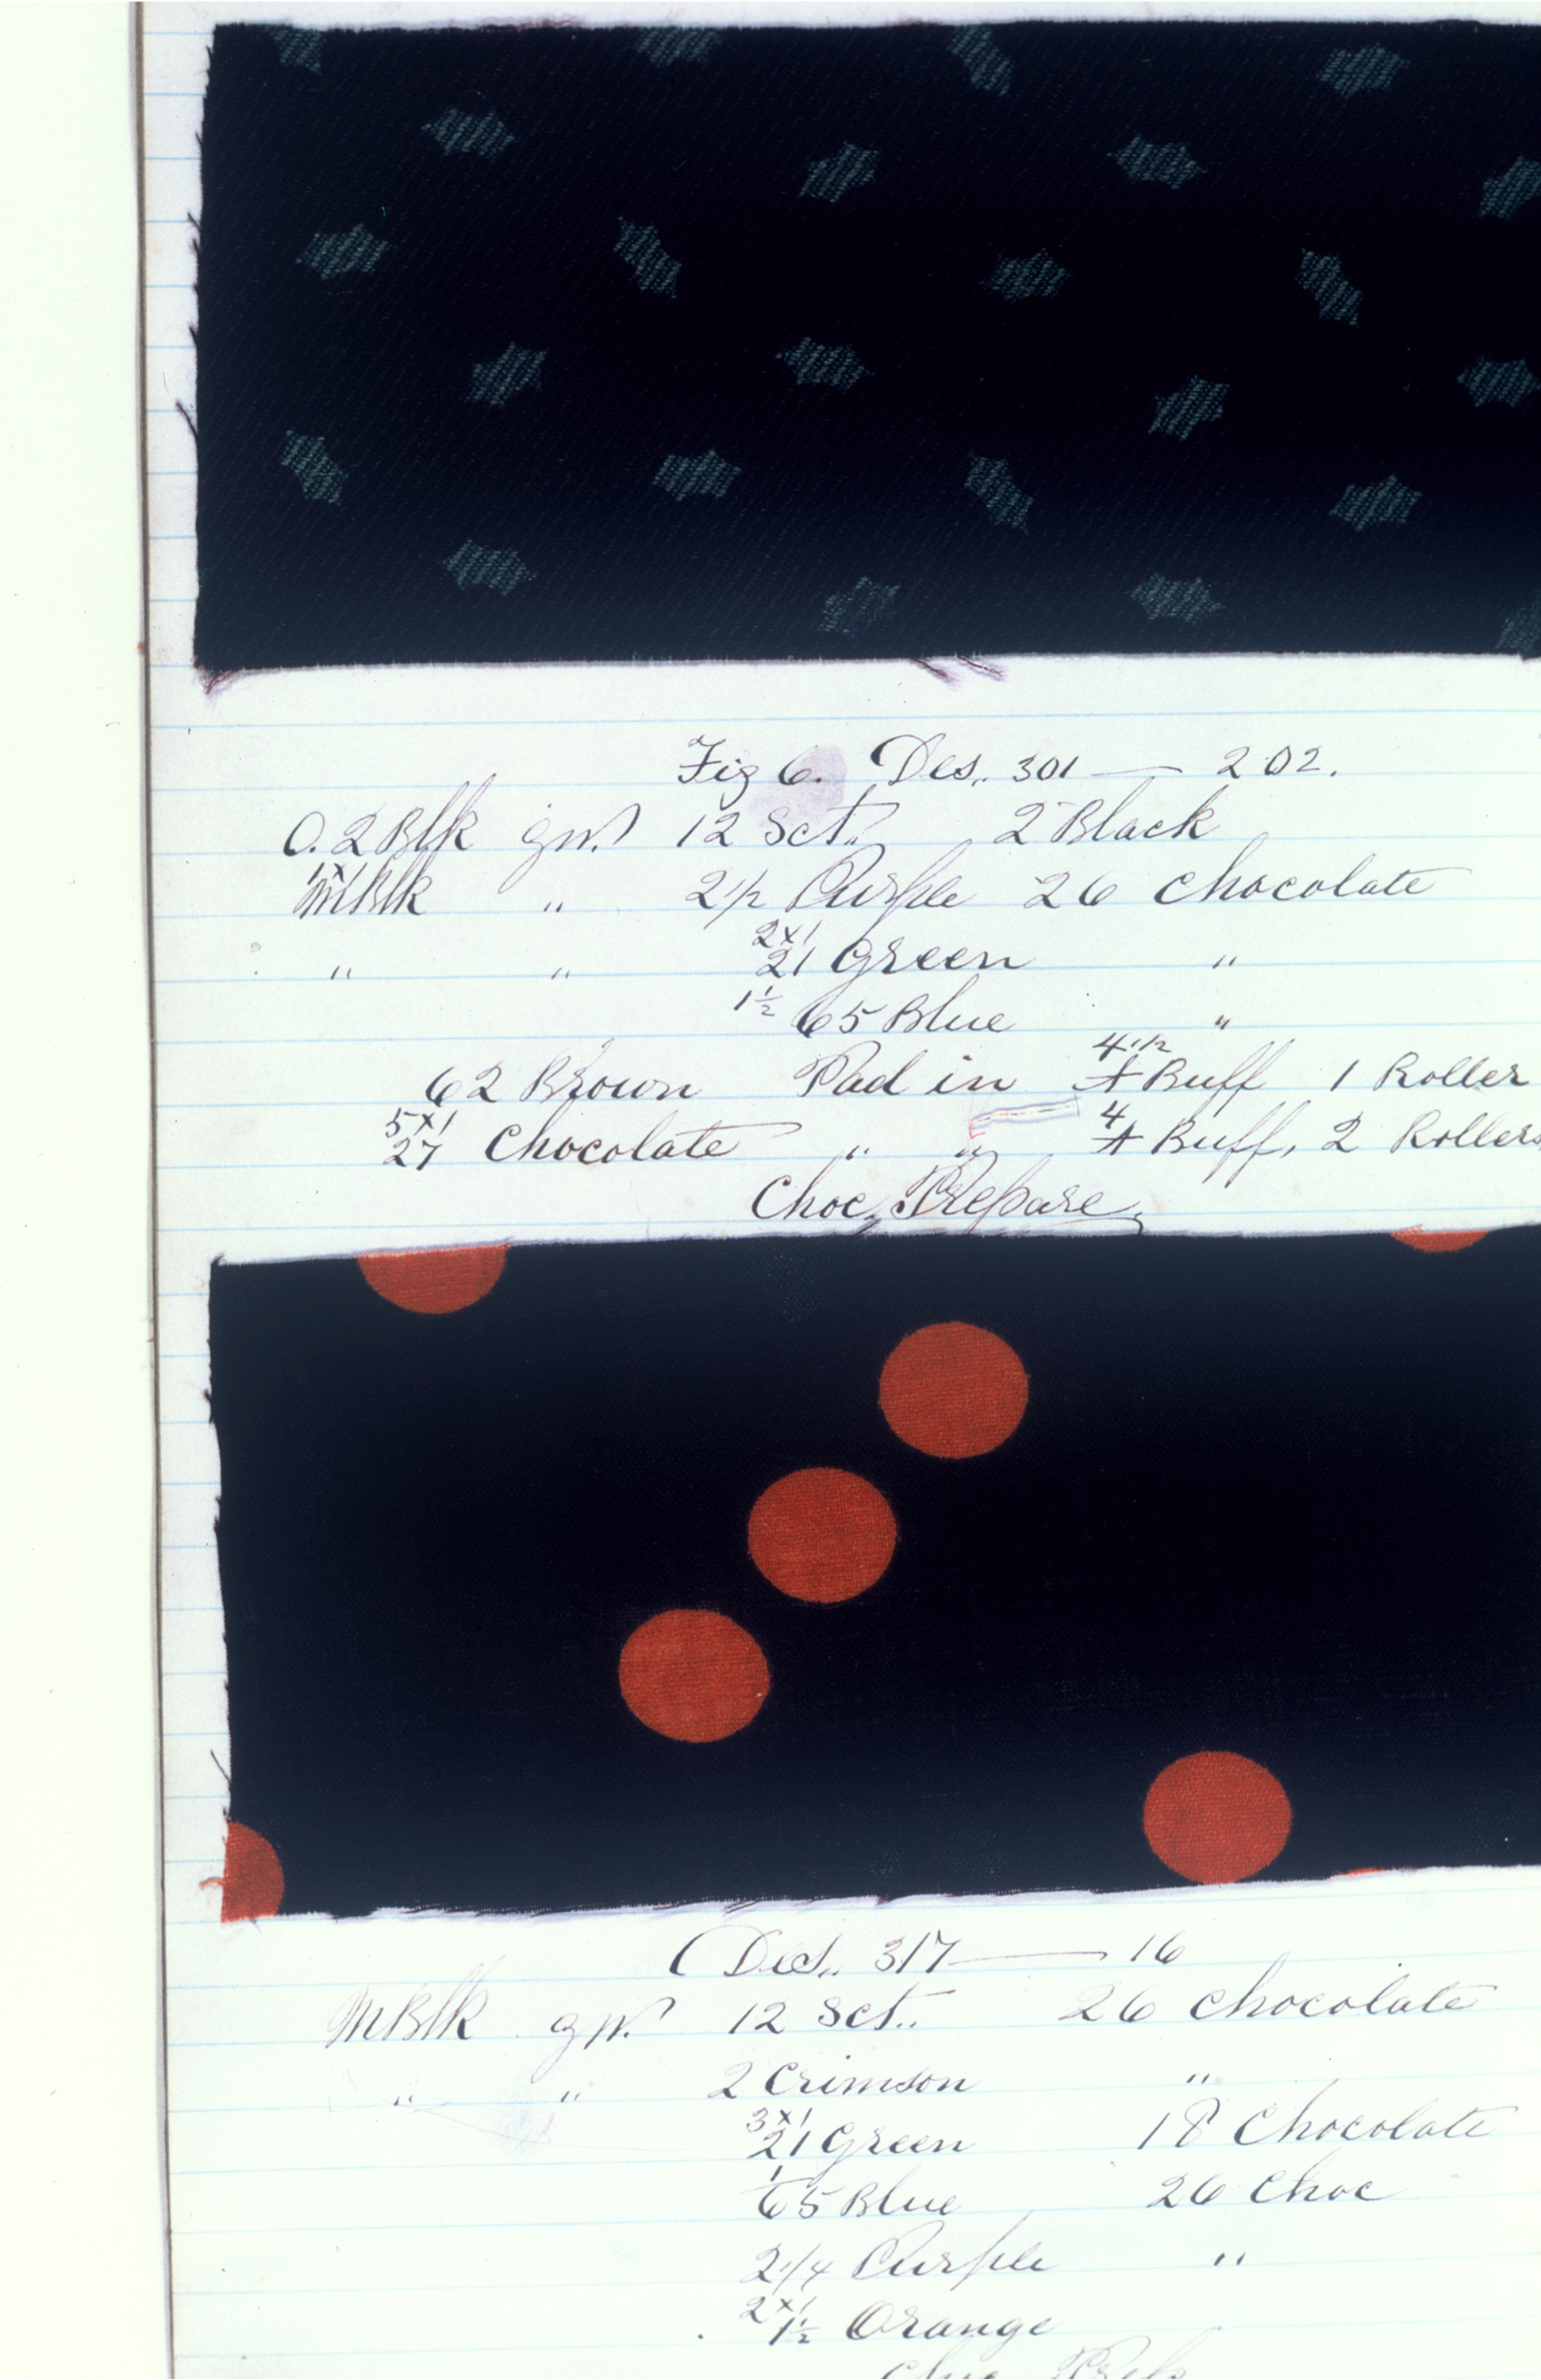 Fig 6. Des. 301 — 202.
O. 2 Blk gr. 12 Sct. 2 Black
1x1
M Blk " 2 1/2 Purple 26 Chocolate
2x1
" " 21 Green "
1 1/2 65 Blue "
4 1/2
62 Brown Pad in A Buff 1 Roller
5x1 4
27 Chocolate " " A Buff, 2 Rollers
Choc. Prepare.
Des. 317 — 16
M Blk gr. 12 Sct. 26 Chocolate
" " 2 Crimson "
3x1
21 Green 18 Chocolate
1
65 Blue 26 Choc
2 1/4 Purple "
2x1
1 1/2 Orange